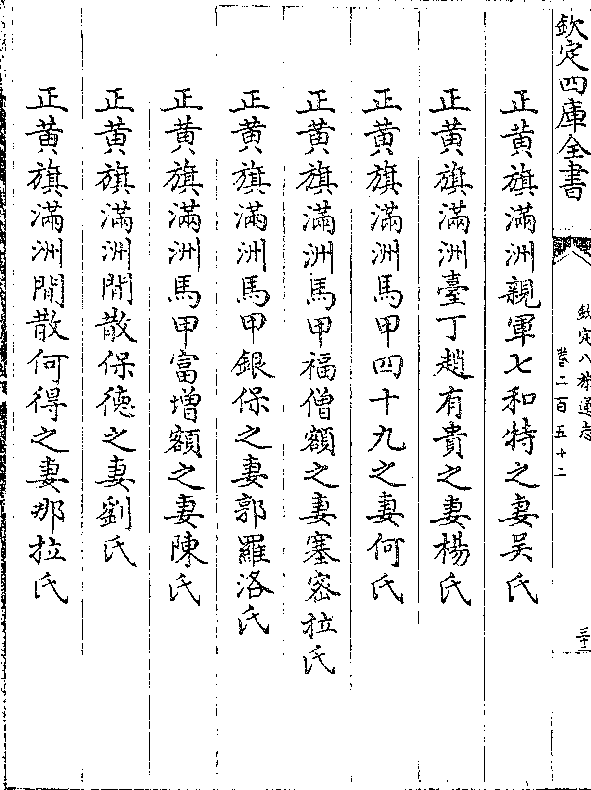 欽定四庫全書
欽定八旗通志
卷二百五十二
三十二
正黃旗滿洲親軍七和特之妻吴氏
正黃旗滿洲臺丁趙有貴之妻楊氏
正黃旗滿洲馬甲四十九之妻何氏
正黃旗滿洲馬甲福僧額之妻塞宻拉氏
正黃旗滿洲馬甲銀保之妻郭羅洛氏
正黃旗滿洲馬甲富增額之妻陳氏
正黃旗滿洲閒散保德之妻劉氏
正黃旗滿洲閒散何得之妻那拉氏